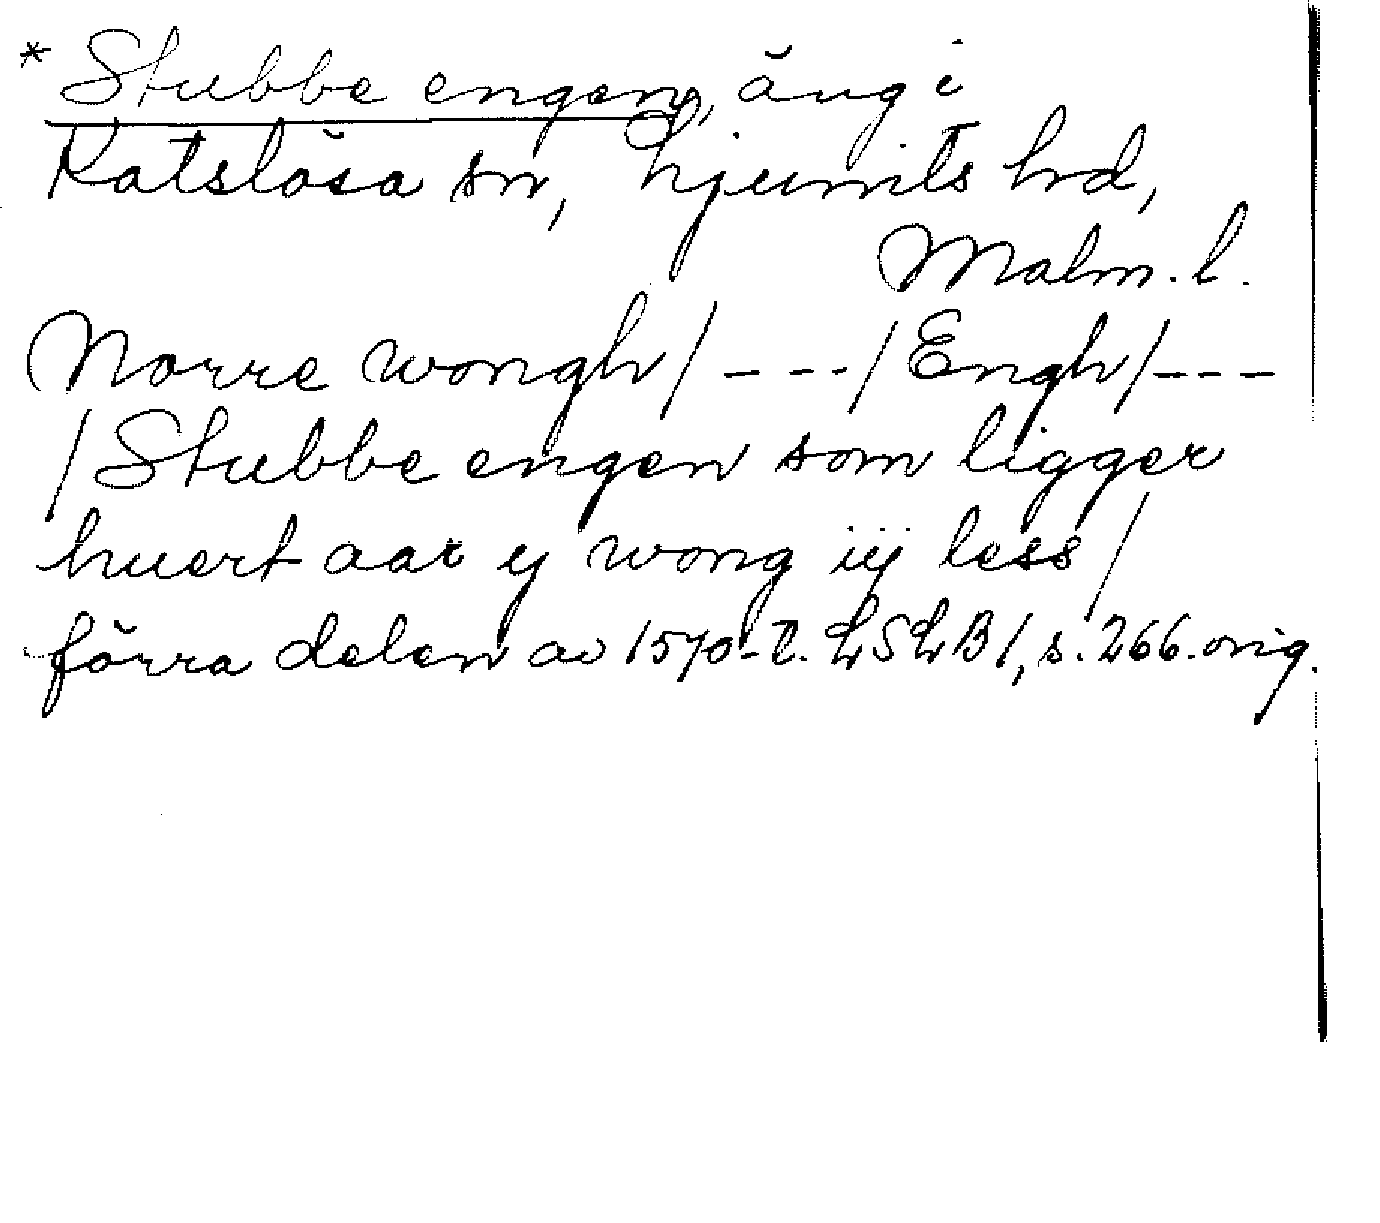 * Stubbe engen, äng i
Katslösa sn, Ljunits hrd,
Malm. l.
Norre wongh/ --- / Engh/ ---
/ Stubbe engen som ligger
huert aar y wong iij less /
förra delen av 1570-t. LSLB 1, s. 266. orig.